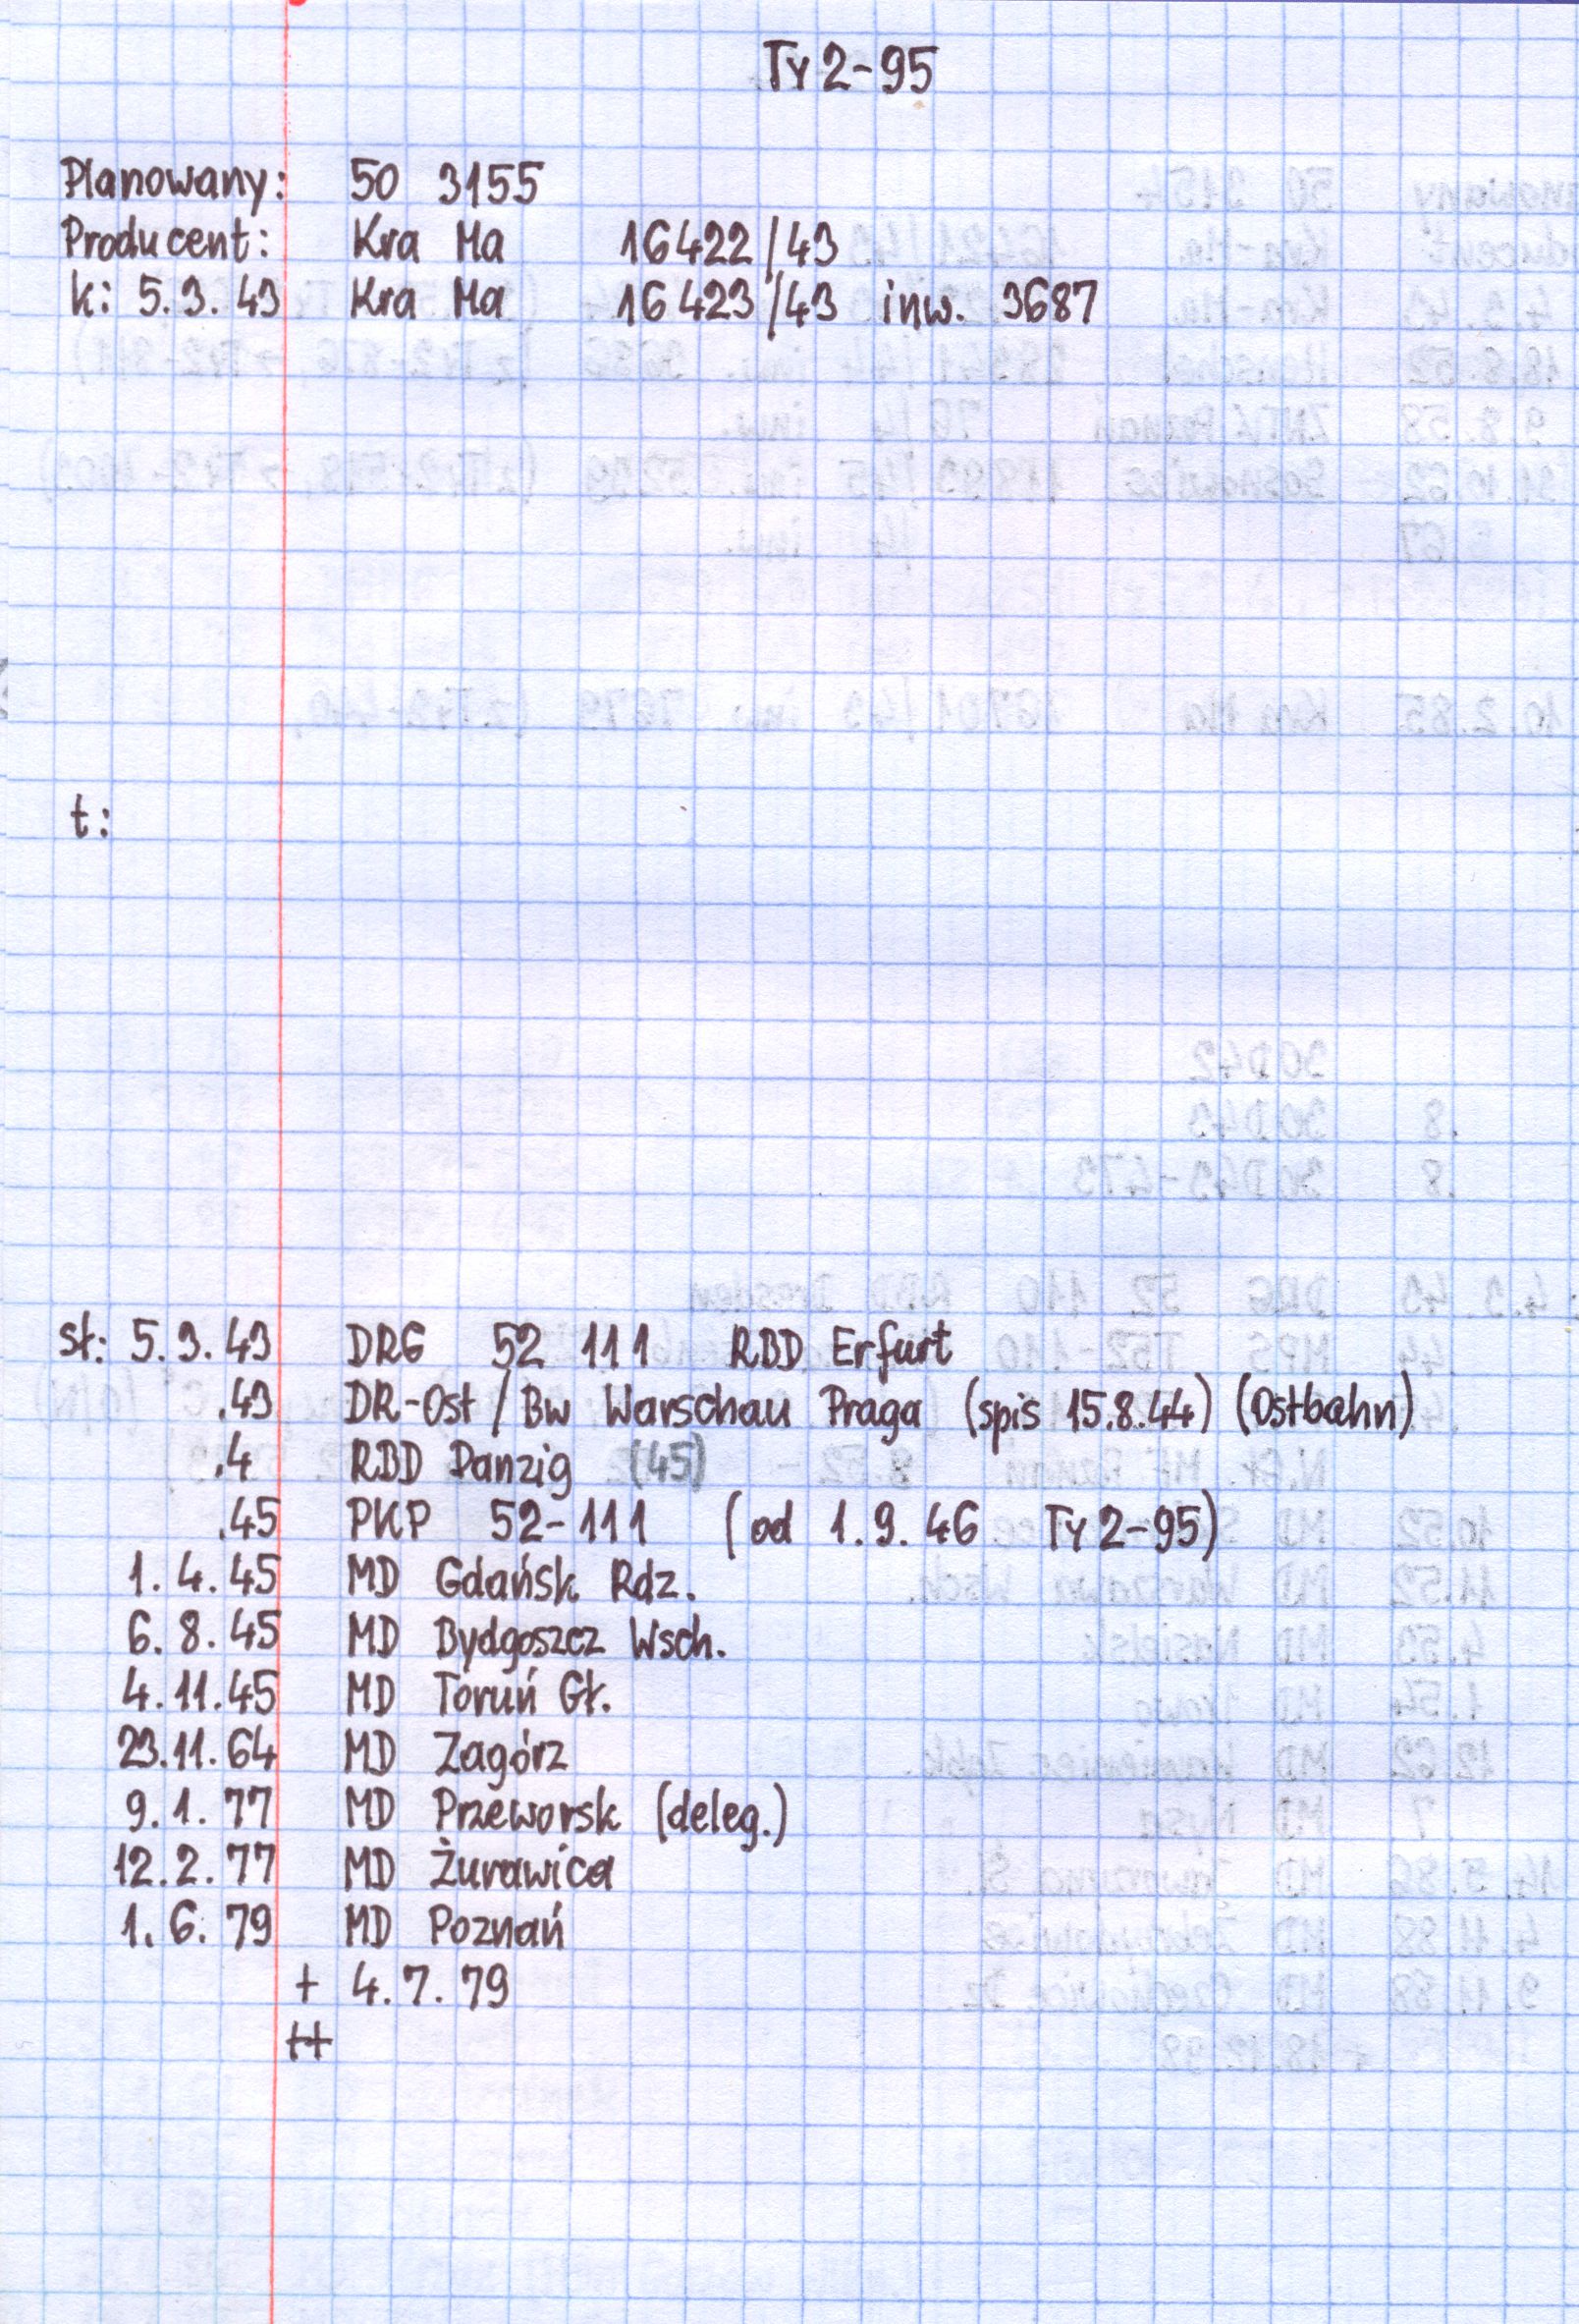 Ty2-95
Planowany: 50 3155
Producent: Kra Ma 16422/43
k: 5.3.43 Kra Ma 16423/43 inw. 3687
t:
st: 5.3.43 DRG 52 111 RBD Erfurt
.43 DR-Ost/Bw Warschau Praga (spis 15.8.44) (Ostbahn)
.4 RBD Danzig (45)
.45 PKP 52-111 (od 1.9.46 Ty2-95)
1.4.45 MD Gdańsk Rdz.
6.8.45 MD Bydgoszcz Wsch.
4.11.45 MD Toruń Gł.
23.11.64 MD Zagórz
9.1.77 MD Przeworsk (deleg.)
12.2.77 MD Żurawica
1.6.79 MD Poznań
+ 4.7.79
++